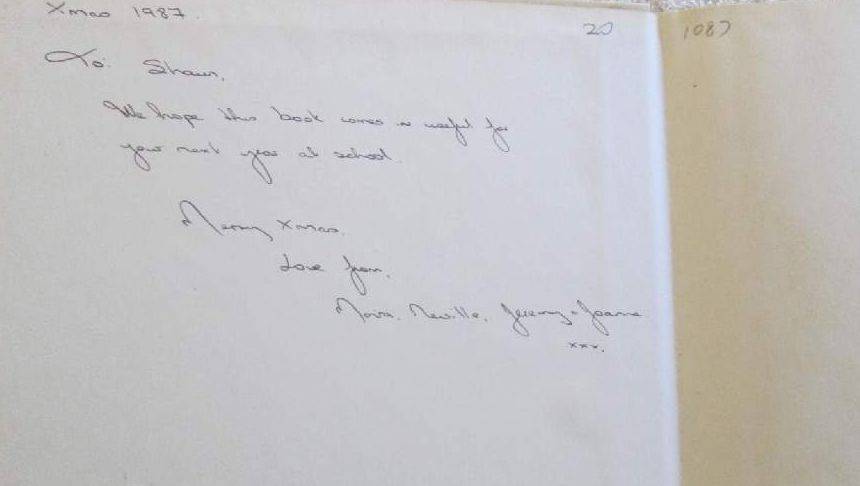 Xmas 1987.
20
1087
To: Shaun,
We hope this book comes in useful for
your next year at school.
Merry Xmas.
Love from,
Moira, Neville, Jeremy + Joanne
xxx.